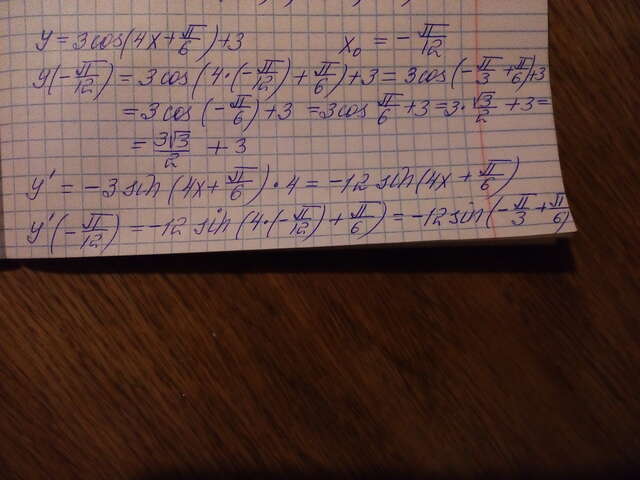 y = 3cos(4x + π/6) + 3 x₀ = -π/12
y(-π/12) = 3cos(4·(-π/12) + π/6) + 3 = 3cos(-π/3 + π/6)+3
= 3cos(-π/6) + 3 = 3cos π/6 + 3 = 3·√3/2 + 3 =
= 3√3/2 + 3
y' = -3sin(4x + π/6)·4 = -12sin(4x + π/6)
y'(-π/12) = -12sin(4·(-π/12) + π/6) = -12sin(-π/3 + π/6)